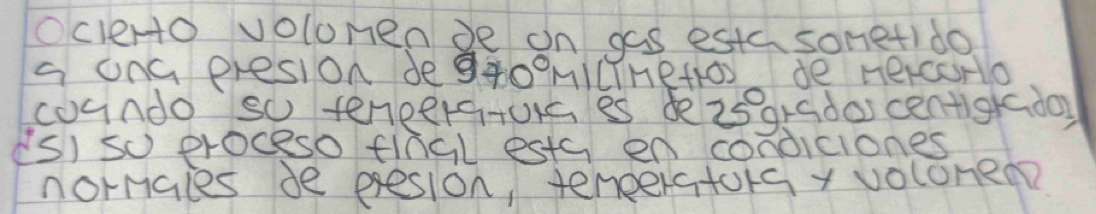 Ocierto volumen de un gas esta sometido
a una presion de 970° milimetros de mercurio
cuando su temperatura es de 25° grados centigrados
¿si su proceso final esta en condiciones
normales de presion, temperatura y volumen?